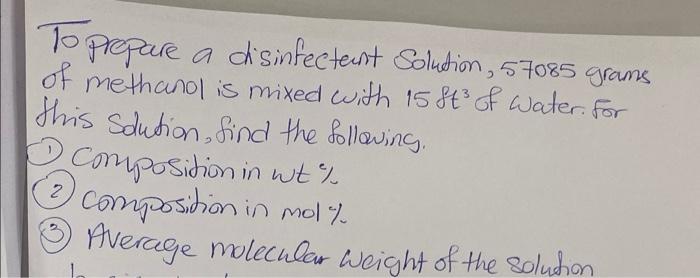 To prepare a disinfectent Solution, 57085 grams
of methanol is mixed with 15 ft³ of water. For
this solution, find the following.
① Composition in wt %
② composition in mol %
③ Average molecular weight of the solution